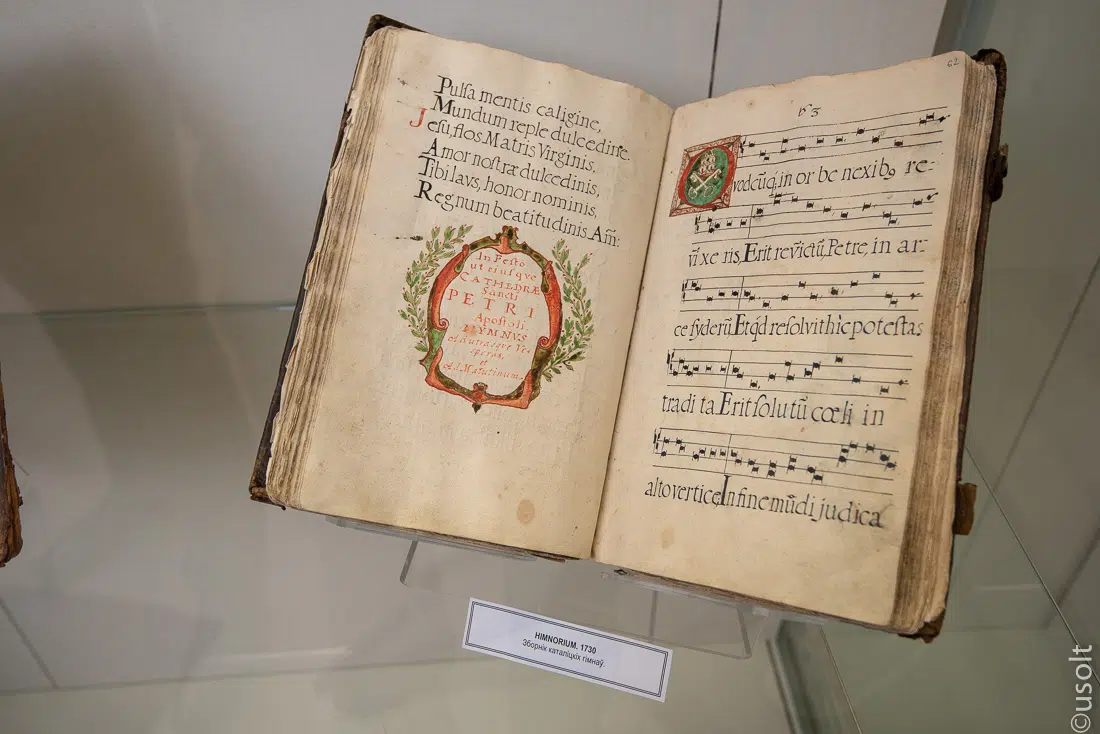 Pulsa mentis caligine,
Mundum reple dulcedine.
Jesu, flos Matris Virginis,
Amor nostræ dulcedinis,
Tibi laus, honor nominis,
Regnum beatitudinis. Am̃:
In Festo
ut eiusqve
CATHEDRÆ
Sancti
PETRI
Apostoli
HYMNVS
ad utrasqve Ve-
speras,
et
ad Matutinum.
62
63
Qvodcũq, in or be nexib9 re-
vĩ xe ris, Erit revictũ, Petre, in ar-
ce syderũ, Et qd resolvit hic potestas
tradi ta, Erit solutũ cœli in
alto vertice, In fine mũdi judica
HIMNORIUM. 1730
Зборнік каталіцкіх гімнаў.
©usolt